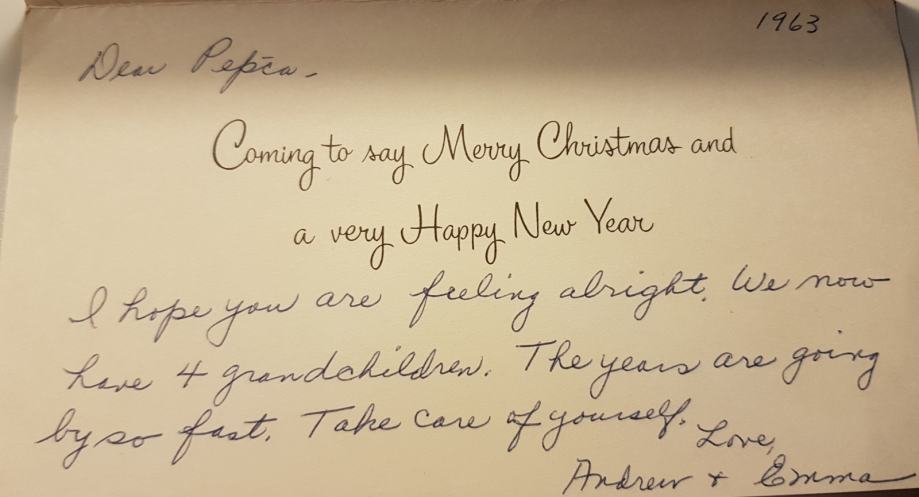 1963
Dear Pepca -
Coming to say Merry Christmas and
a very Happy New Year
I hope you are feeling alright. We now
have 4 grandchildren. The years are going
by so fast. Take care of yourself.
Love,
Andrew + Emma